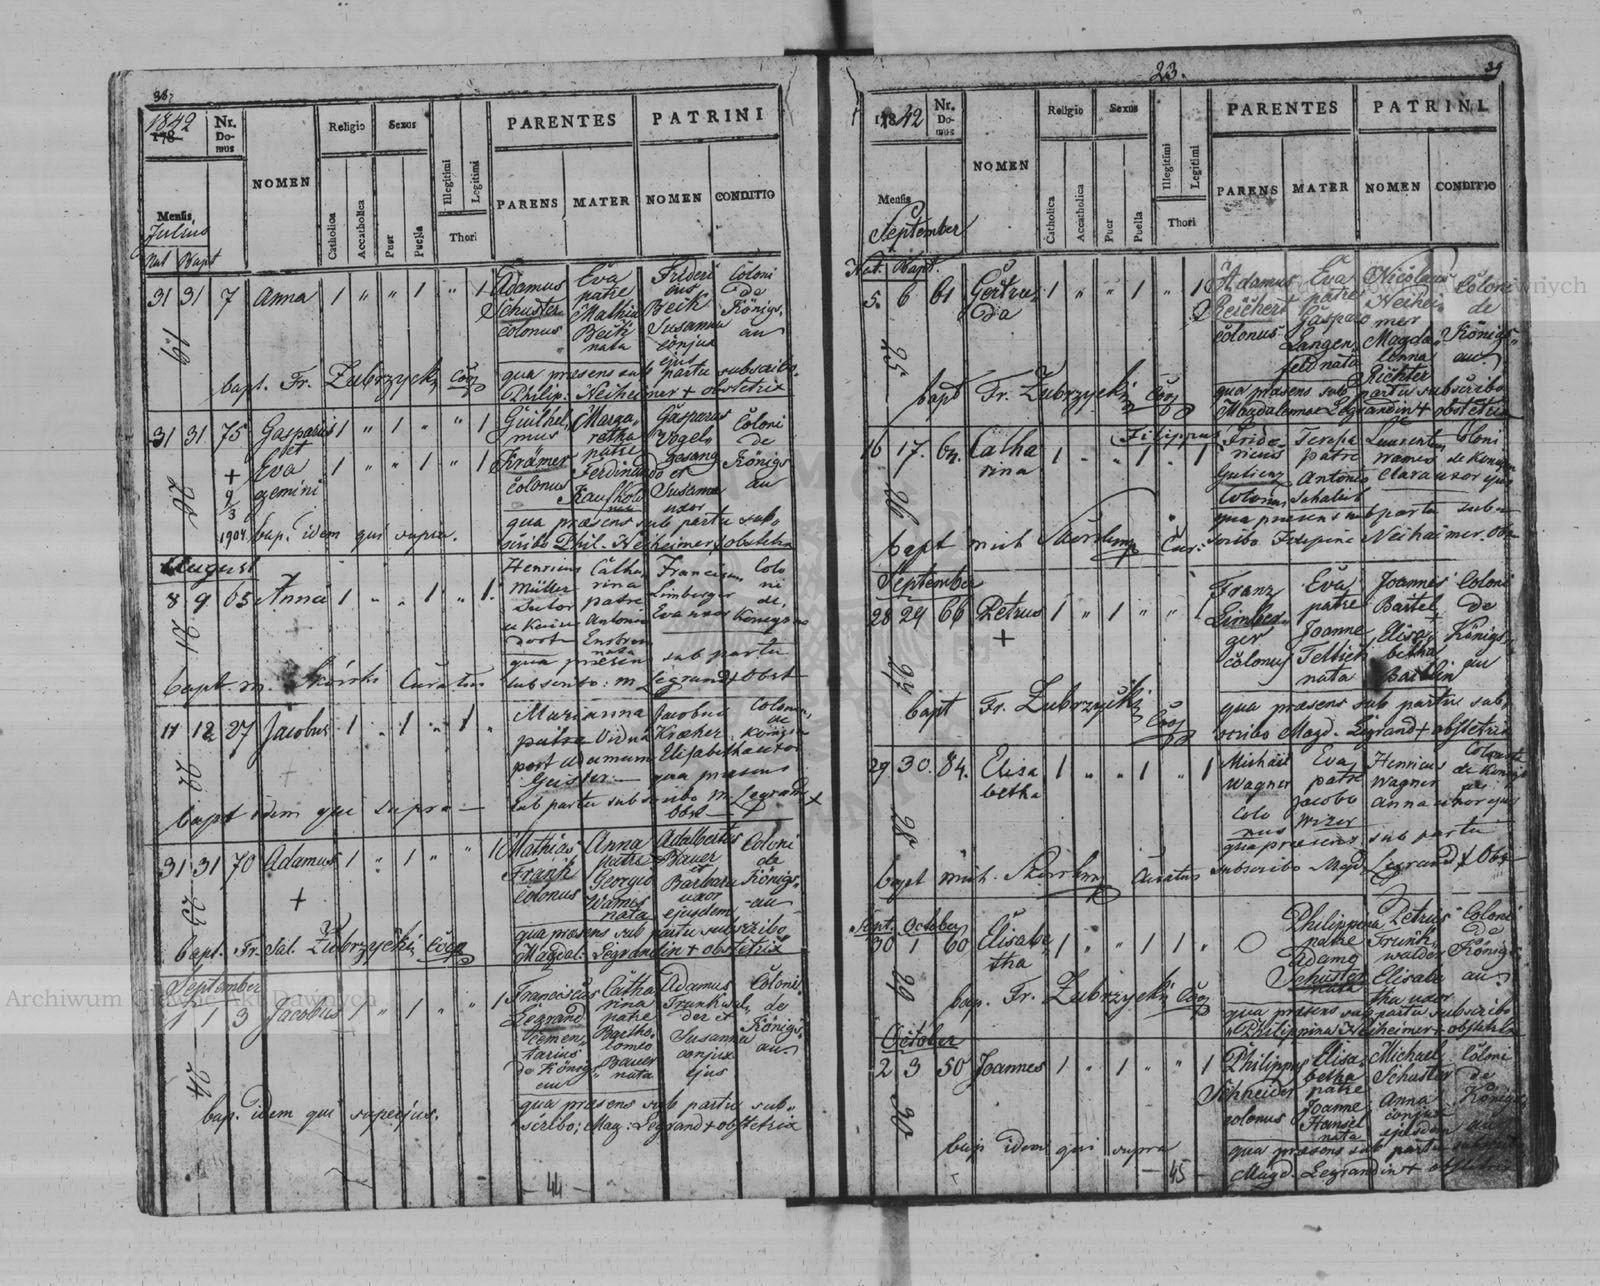 38
1842
178
Nr. Domus
NOMEN
Religio
Sexus
PARENTES
PATRINI
Catholica
Accatholica
Puer
Puella
Illegitimi
Legitimi
Thori
PARENS
MATER
NOMEN
CONDITIO
Mensis,
Julius
Nat Bapt
31 31 7 Anna 1 " " 1 " 1
Adamus Schuster colonus
Eva patre Mathia Beik nata
Fridericus Beik Susanna conjux ejus
Coloni de Königsau
19
bapt. Fr. Zubrzycki Coop
qua præsens sub partu subscribo
Philip: Neiheimer + obstetrix
31 31 75 Gasparus 1 " 1 " " 1
et
Eva 1 " " 1 " 1
gemini
+ 9/3 1904
20
Guilhelmus Krämer colonus
Margaretha patre Ferdinando nata
Gasparus Vogelgesang et Susanna uxor
Coloni de Königsau
bap. idem qui supra.
qua præsens sub partu subscribo Phil. Neiheimer + obstetrix
August
8 9 65 Anna 1 " " 1 " 1
21
Henricus Müller sutor
Catharina patre Antonio nata
Franciscus Limberger Eva uxor
Coloni de Königsau
bapt. m. Skórski Curatus
qua præsens sub partu
subscribo: M. Legrand + Obst
11 12 27 Jacobus 1 " 1 " 1 "
22
Marianna patre Vidua post Adamum Geister
Jacobus Kræher Elisabetha uxor
Colonus de Königsau
qua præsens
bapt idem qui supra
sub partu subscribo M. Legrand + Obst
31 31 70 Adamus 1 " 1 " " 1
+
23
Mathias Frank colonus
Anna patre Georgio Wames nata
Adalbertus Bauer et Barbara uxor ejusdem
Coloni de Königsau
bapt. Fr. Sal. Zubrzycki Coop
qua præsens sub partu subscribo
Magdal. Legrandin + obstetrix
September
1 1 3 Jacobus 1 " 1 " " 1
24
Franciscus Legrand de Königsau
Catharina patre Bartholomeo Bauer nata
Adamus Frunkwalder et Susanna conjux ejus
Coloni de Königsau
bap. idem qui superius.
qua præsens sub partu subscribo; Mag: Legrand + obstetrix
44
23.
39
1842
Nr. Domus
NOMEN
Religio
Sexus
PARENTES
PATRINI
Catholica
Accatholica
Puer
Puella
Illegitimi
Legitimi
Thori
PARENS
MATER
NOMEN
CONDITIO
Mensis
September
Nat. Bapt.
5. 6 61 Gertruda 1 " " 1 " 1
25
Adamus Reichert colonus
Eva patre Gasparo Langenfeld nata
Nicolaus Neiheimer Magdalenna Richter
Coloni de Königsau
bapt Fr. Zubrzycki Coop
qua præsens sub partu subscribo
Magdalennae Legrandin + obstetrix
16 17. 64. Catharina 1 " " 1 " 1
26
Fridericus colonus
Teresa patre Antonio
Laurentius Clara uxor ejus
Coloni de Königsau
bapt mich Skórski Cur.
qua præsens sub partu subscribo Filipina Neihaimer. Obs
September
28 29 66 Petrus 1 " 1 " " 1
+
27
Franz Limberger colonus
Eva patre Joanne nata
Joannes Bartel Elisabetha Bartlin
Coloni de Königsau
bapt Fr. Zubrzycki Coop
qua præsens sub partu subscribo Magd. Legrand + obstetrix
29 30. 84. Elisabetha 1 " " 1 " 1
28
Michäel Wagner Colonus
Eva patre Jacobo Wizer
Henricus Wagner Anna uxor ejus
qua præsens sub partu
bapt mich. Skórski Curatus
subscribo Magd Legrand + Obs
Sept. October
30 1 60 Elisabetha 1 " " 1 1 "
29
Philippina patre Adamo Schuster nata
Petrus Frunkwalder Elisabetha uxor
Coloni de Königsau
bap. Fr. Zubrzycki Coop
qua præsens sub partu subscribo
Philippina Neiheimer + obstetrix
October
2 3 50 Joannes 1 " 1 " " 1
30
Philippus Schneider colonus
Elisabetha patre Joanne Hansel nata
Michael Schuster Anna conjux ejusdem
Coloni de Königsau
bap idem qui supra
qua præsens sub partu subscribo
Magd. Legrandin + obstetrix
45
Archiwum Główne Akt Dawnych